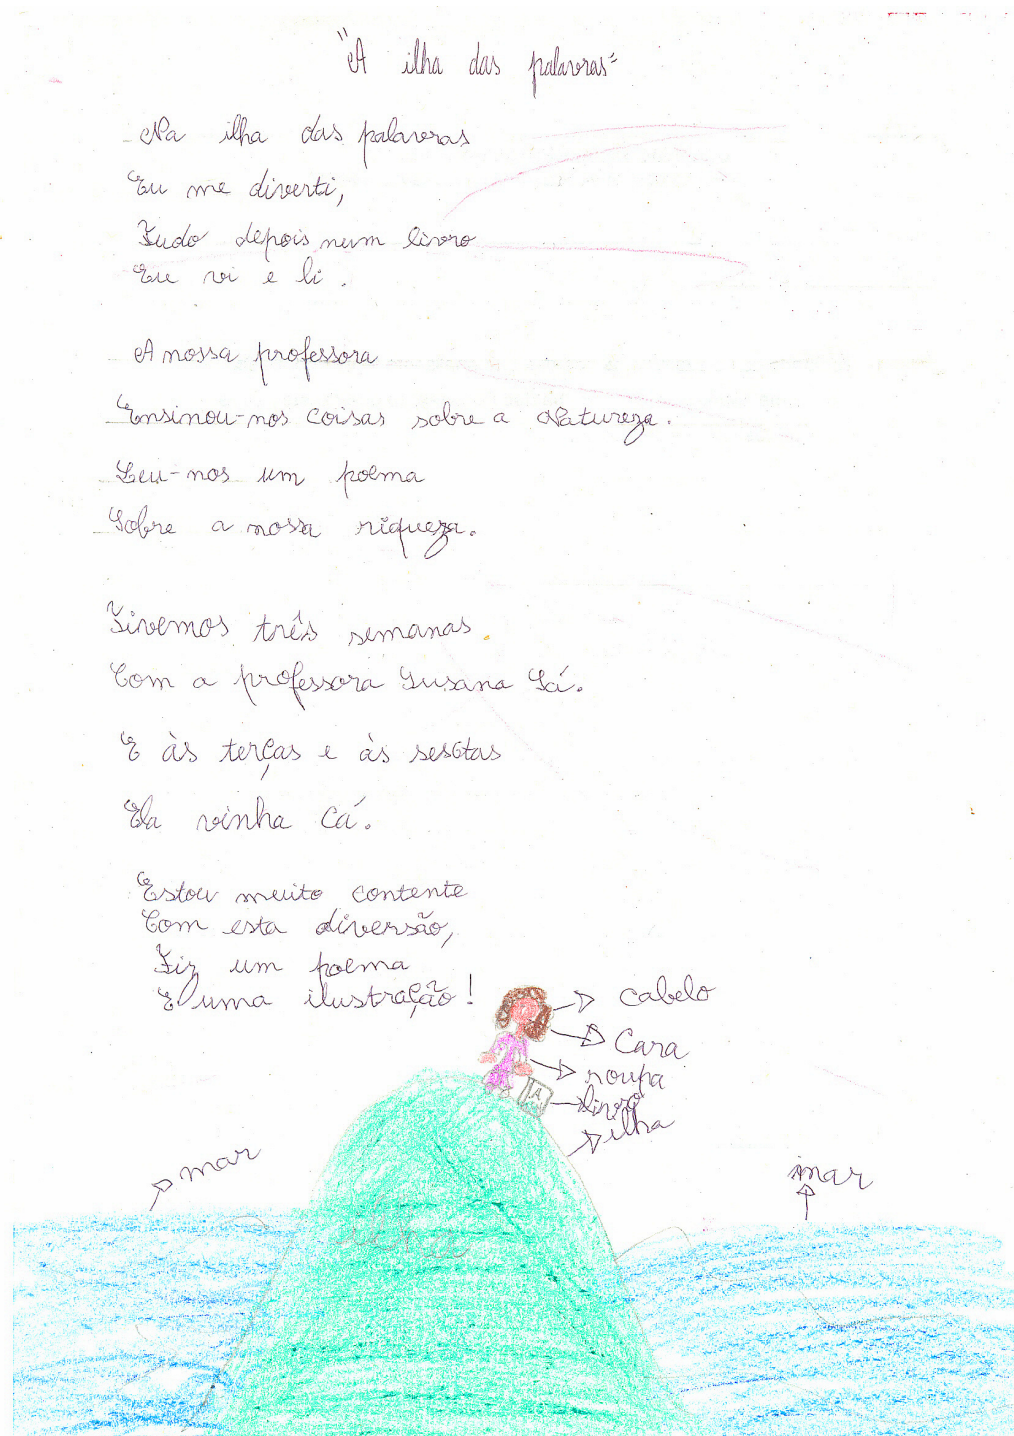 "A ilha das palavras"
Na ilha das palavras
Eu me diverti,
Tudo depois num livro
Eu vi e li.
A nossa professora
Ensinou-nos coisas sobre a Natureza.
Leu-nos um poema
Sobre a nossa riqueza.
Tivemos três semanas
Com a professora Susana Sá.
E às terças e às sextas
Ela vinha cá.
Estou muito contente
Com esta diversão,
Fiz um poema
E uma ilustração!
cabelo
Cara
roupa
A
livro
ilha
mar
mar